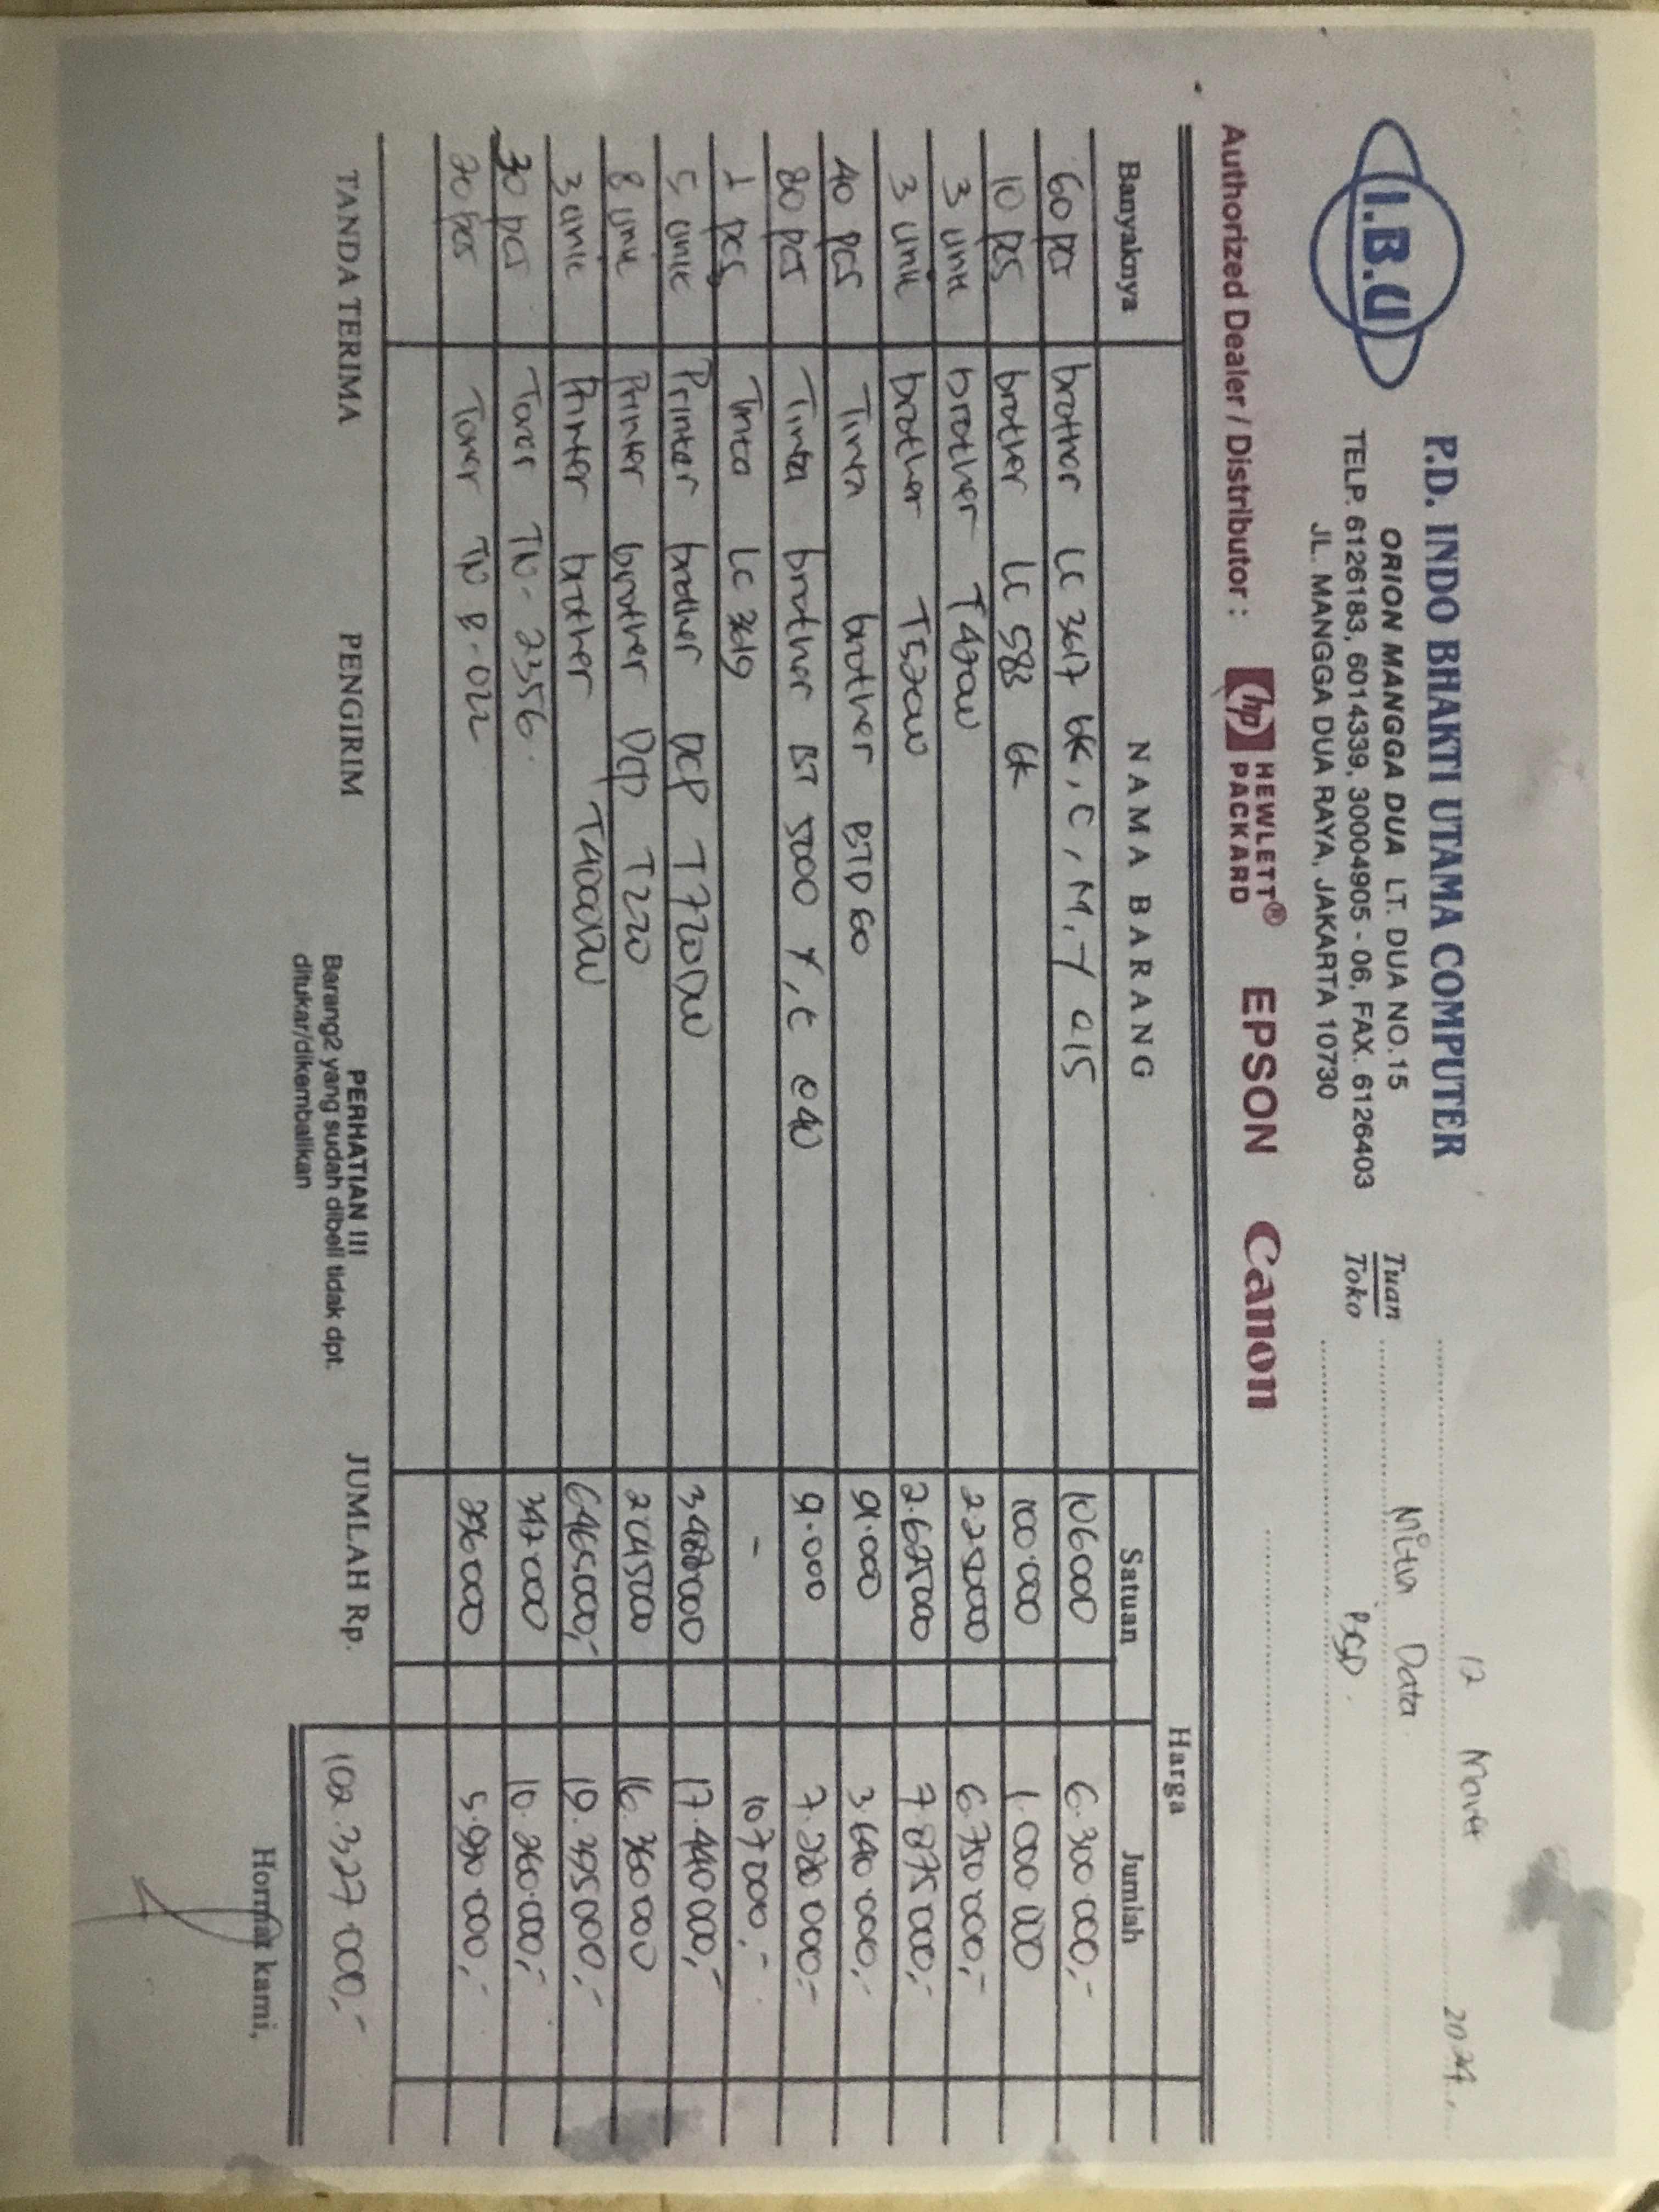 I.B.U
P.D. INDO BHAKTI UTAMA COMPUTER
ORION MANGGA DUA LT. DUA NO.15
TELP. 6126183, 6014339, 30004905 - 06, FAX. 6126403
JL. MANGGA DUA RAYA, JAKARTA 10730
12 Maret 2024
Tuan
Toko
Mitra Data
BSD.
Authorized Dealer / Distributor : hp HEWLETT® PACKARD EPSON Canon
Banyaknya NAMA BARANG Harga
Satuan Jumlah
60 pcs brother LC 3617 bk, C, M, Y @15 106000 6.300.000,-
10 pcs brother LC 583 bk 100.000 1.000.000
3 unit brother T420W 2250000 6.750.000,-
3 unit brother T520W 2.625000 7.875.000,-
40 pcs Tinta brother BTD 60 91.000 3.640.000,-
80 pcs Tinta brother BT 5000 Y, C @40 91.000 7.280.000,-
1 pcs Tinta LC 3619 - 107000,-
5 unit Printer brother DCP T720DW 3488000 17.440.000,-
8 unit Printer brother DCP T220 2045000 16.360.000
3 unit Printer brother T4000DW 6465.000,- 19.395.000,-
30 pcs Toner TN-2356. 342.000 10.260.000,-
20 pcs Toner TN B-022
TANDA TERIMA PENGIRIM
PERHATIAN !!!
Barang2 yang sudah dibeli tidak dpt.
ditukar/dikembalikan
JUMLAH Rp. 102.327.000,-
Hormat kami,